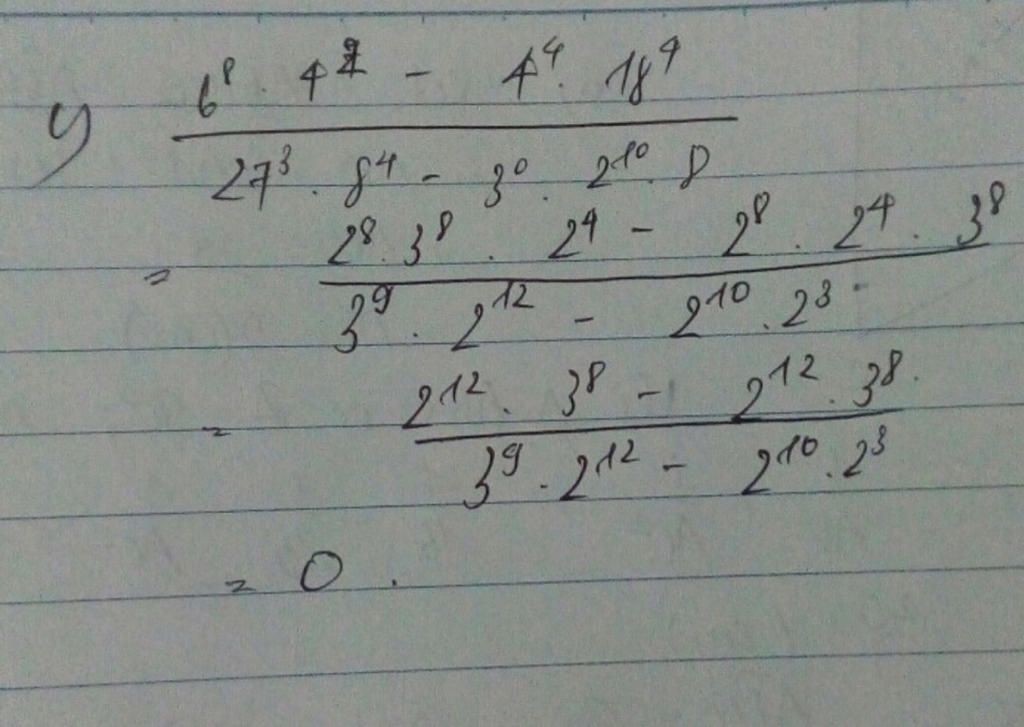 y) \frac{6^8 \cdot 4^2 - 4^4 \cdot 18^4}{27^3 \cdot 8^4 - 3^0 \cdot 2^{10} \cdot 8}
= \frac{2^8 \cdot 3^8 \cdot 2^4 - 2^8 \cdot 2^4 \cdot 3^8}{3^9 \cdot 2^{12} - 2^{10} \cdot 2^3}
= \frac{2^{12} \cdot 3^8 - 2^{12} \cdot 3^8}{3^9 \cdot 2^{12} - 2^{10} \cdot 2^3}
= 0.